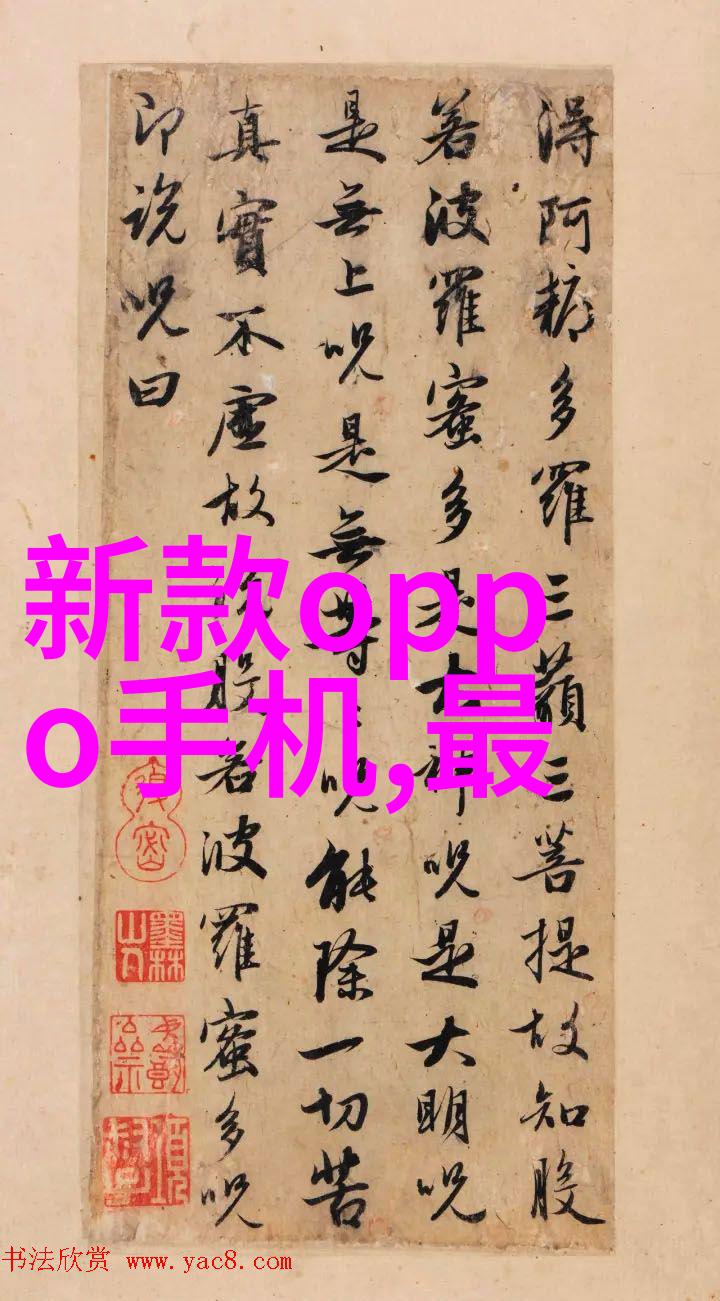 得阿耨多羅三藐三菩提故知般
若波羅蜜多是大神呪是大明呪
是無上呪是無等〻呪能除一切苦
真實不虛故說般若波羅蜜多呪
即說呪曰
新款opp
o手机,最
墨林山人
书法欣赏 www.yac8.com